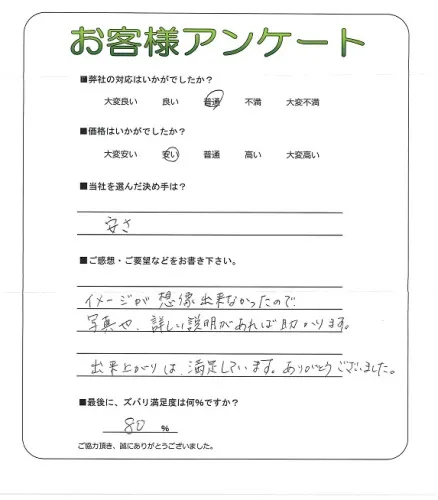 お客様アンケート
■弊社の対応はいかがでしたか？
大変良い 良い 普通 不満 大変不満
■価格はいかがでしたか？
大変安い 安い 普通 高い 大変高い
■当社を選んだ決め手は？
安さ
■ご感想・ご要望などをお書き下さい。
イメージが想像出来なかったので
写真や、詳しい説明があれば助かります。
出来上がりは、満足しています。ありがとうございました。
■最後に、ズバリ満足度は何％ですか？
80 %
ご協力頂き、誠にありがとうございました。